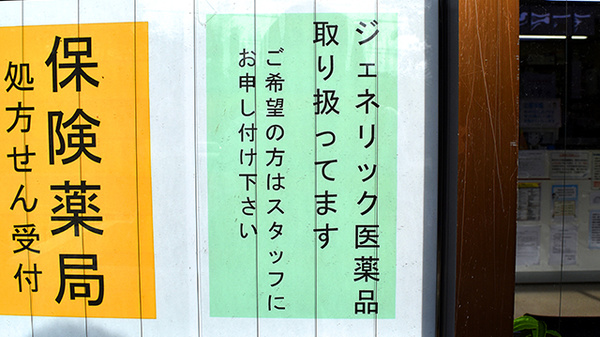 ジェネリック医薬品
取り扱ってます
ご希望の方はスタッフに
お申し付け下さい
保険薬局
処方せん受付